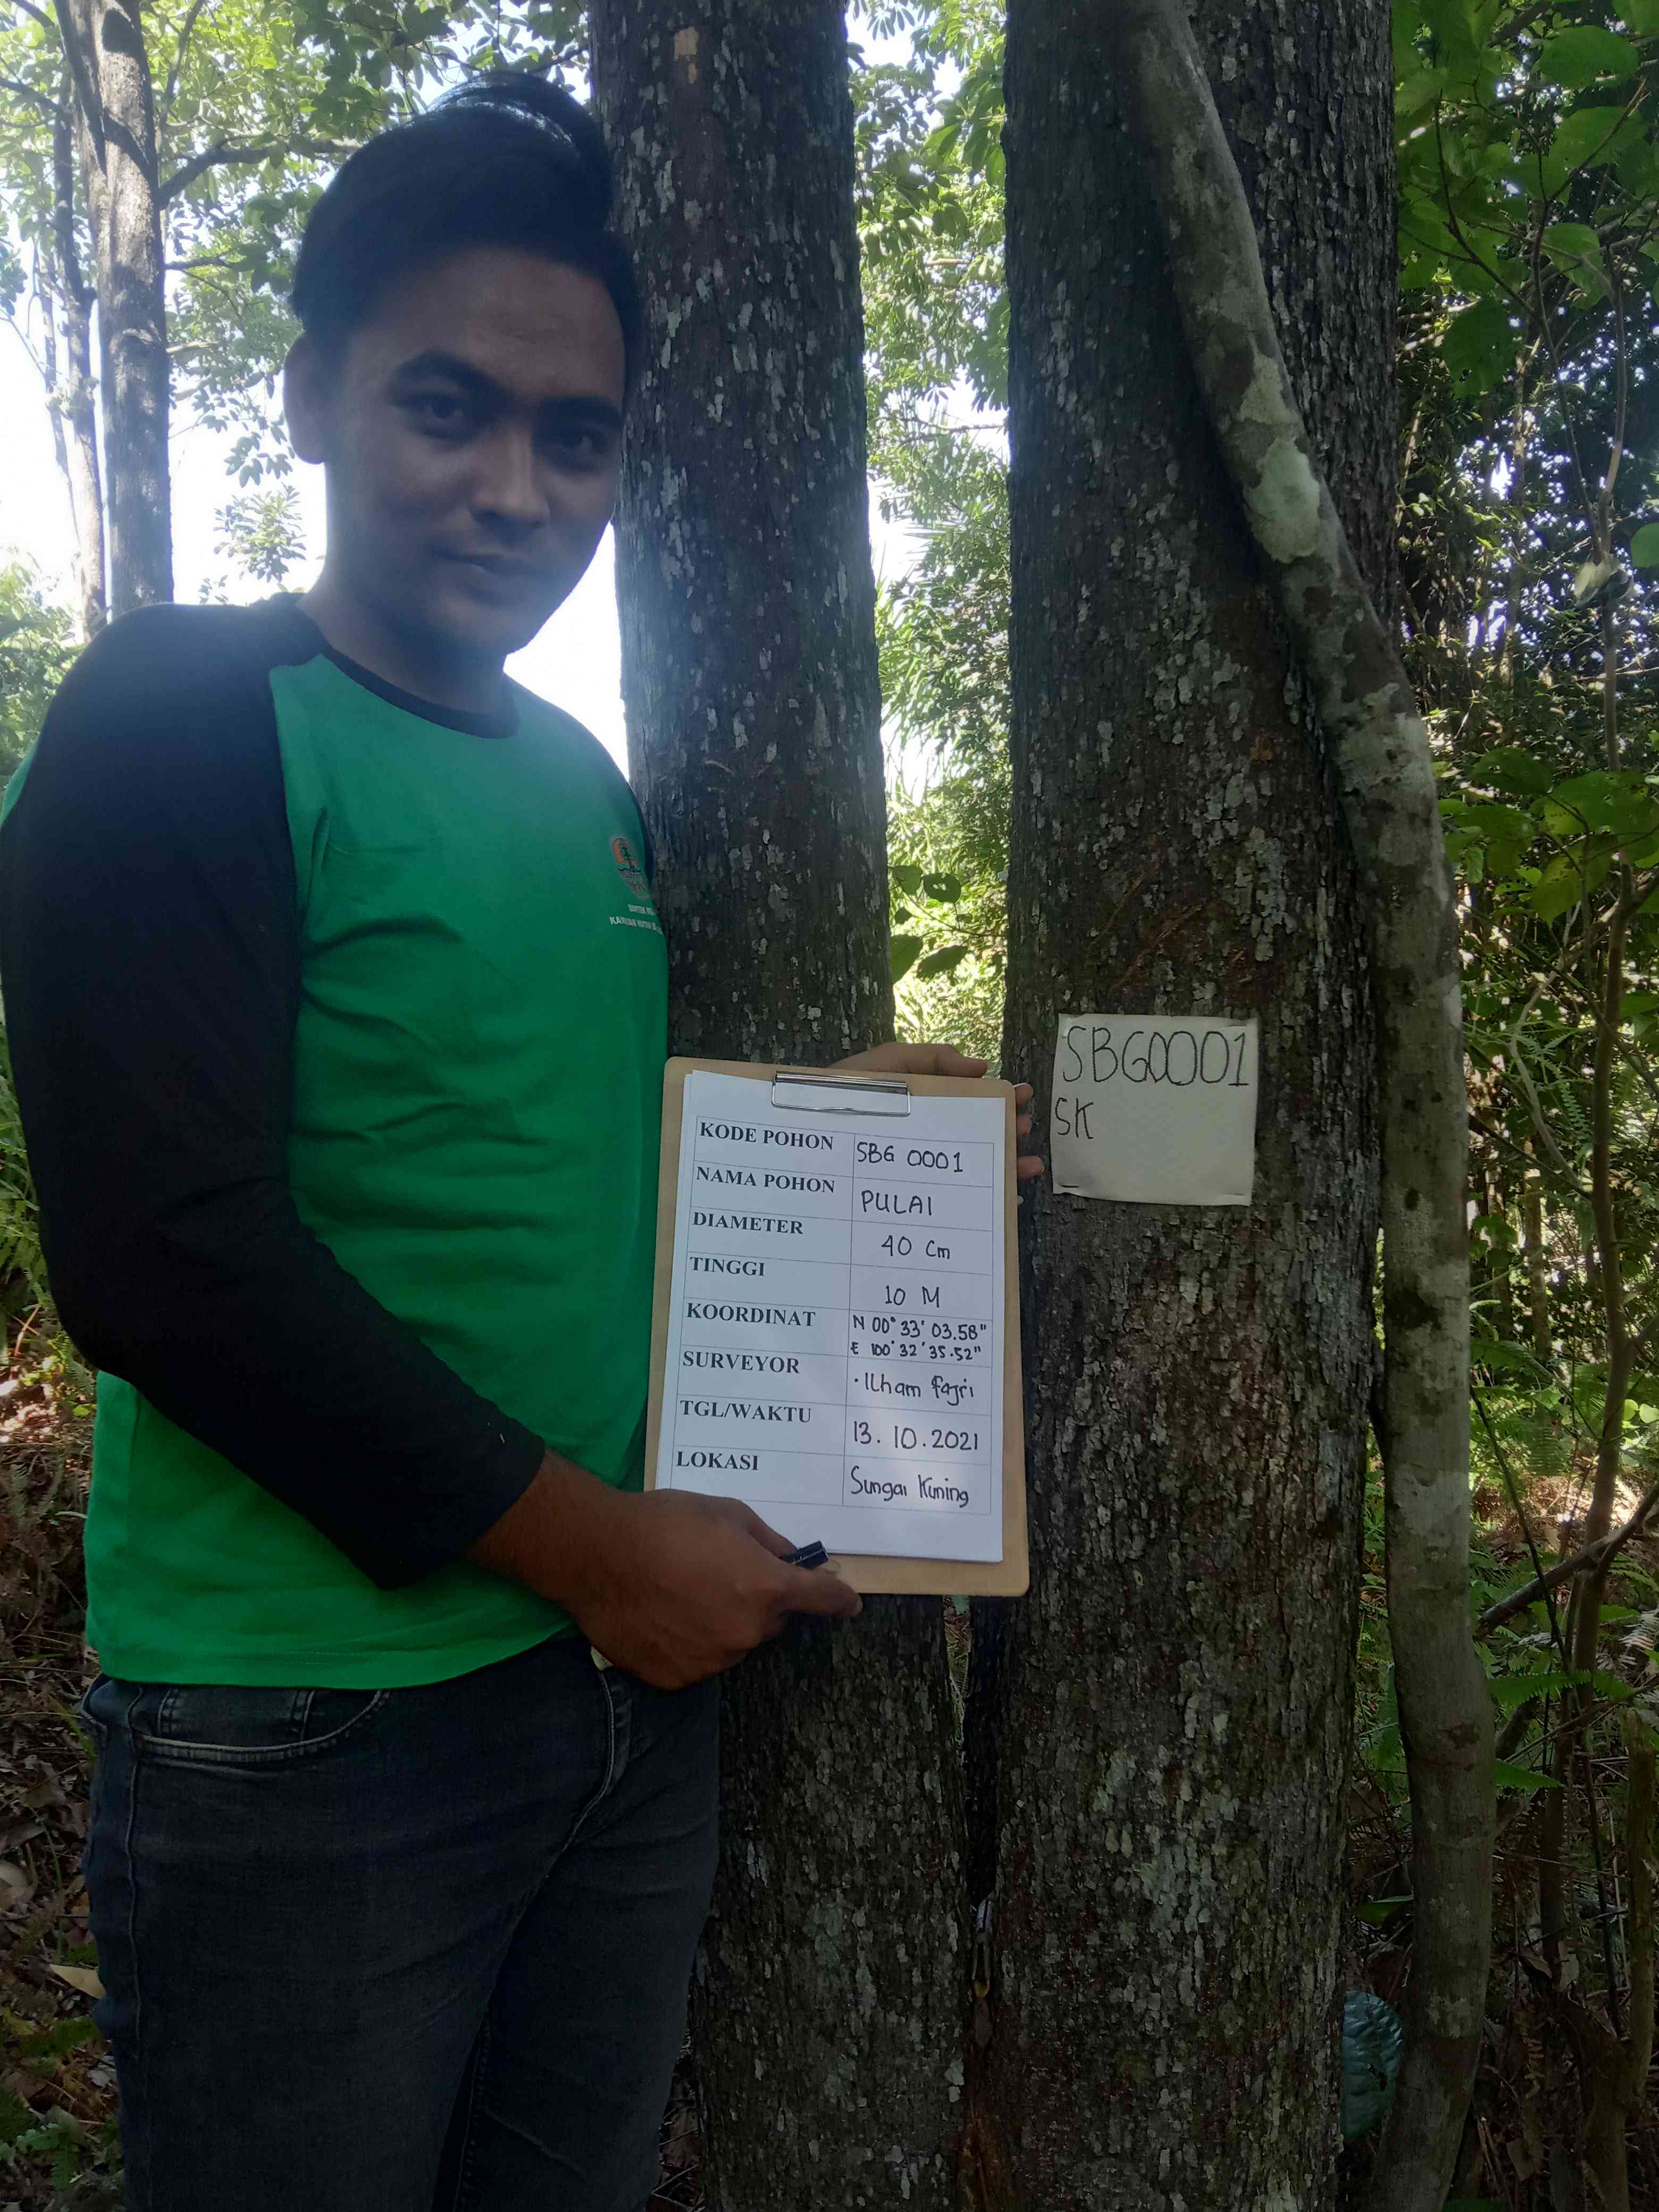 KODE POHON SBG 0001
NAMA POHON PULAI
DIAMETER 40 Cm
TINGGI 10 M
KOORDINAT N 00° 33' 03.58"
E 100° 32' 35.52"
SURVEYOR • Ilham fajri
TGL/WAKTU 13.10.2021
LOKASI Sungai Kuning
SBG0001
SK